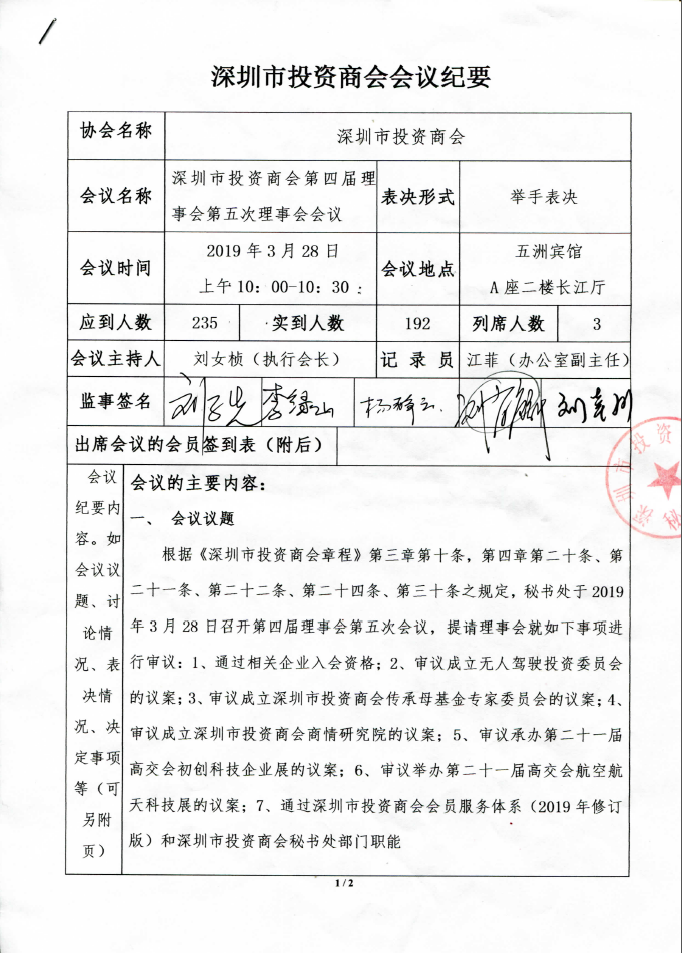 深圳市投资商会会议纪要
协会名称
深圳市投资商会
会议名称
深圳市投资商会第四届理
事会第五次理事会会议
表决形式
举手表决
会议时间
2019 年 3 月 28 日
上午 10：00-10：30
会议地点
五洲宾馆
A 座二楼长江厅
应到人数
235
实到人数
192
列席人数
3
会议主持人
刘女桢（执行会长）
记 录 员
江菲（办公室副主任）
监事签名
出席会议的会员签到表（附后）
会议
纪要内
容。如
会议议
题、讨
论情
况、表
决情
况、决
定事项
等（可
另附
页）
会议的主要内容：
一、 会议议题
根据《深圳市投资商会章程》第三章第十条，第四章第二十条、第
二十一条、第二十二条、第二十四条、第三十条之规定，秘书处于 2019
年 3 月 28 日召开第四届理事会第五次会议，提请理事会就如下事项进
行审议：1、通过相关企业入会资格；2、审议成立无人驾驶投资委员会
的议案；3、审议成立深圳市投资商会传承母基金专家委员会的议案；4、
审议成立深圳市投资商会商情研究院的议案；5、审议承办第二十一届
高交会初创科技企业展的议案；6、审议举办第二十一届高交会航空航
天科技展的议案；7、通过深圳市投资商会会员服务体系（2019 年修订
版）和深圳市投资商会秘书处部门职能
深圳市投资
秘
1 / 2